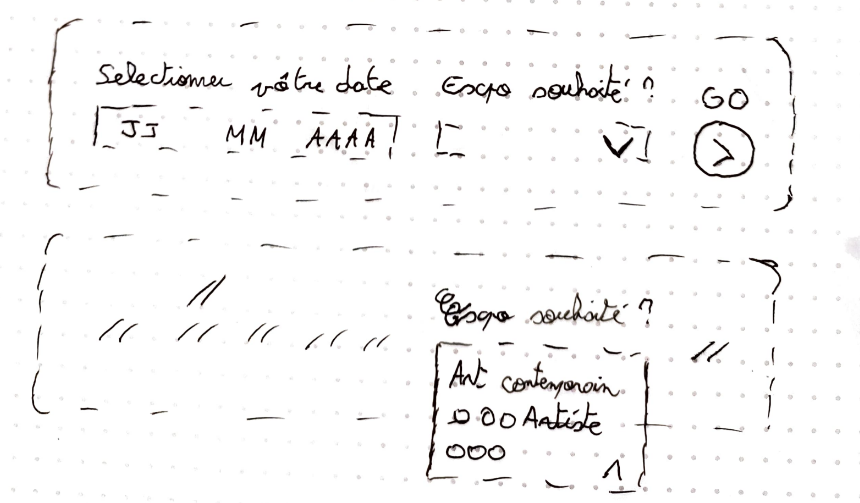 Selectionner vôtre date Expo souhaité ? GO
JJ MM AAAA
Expo souhaité ?
Art contemporain
Artiste